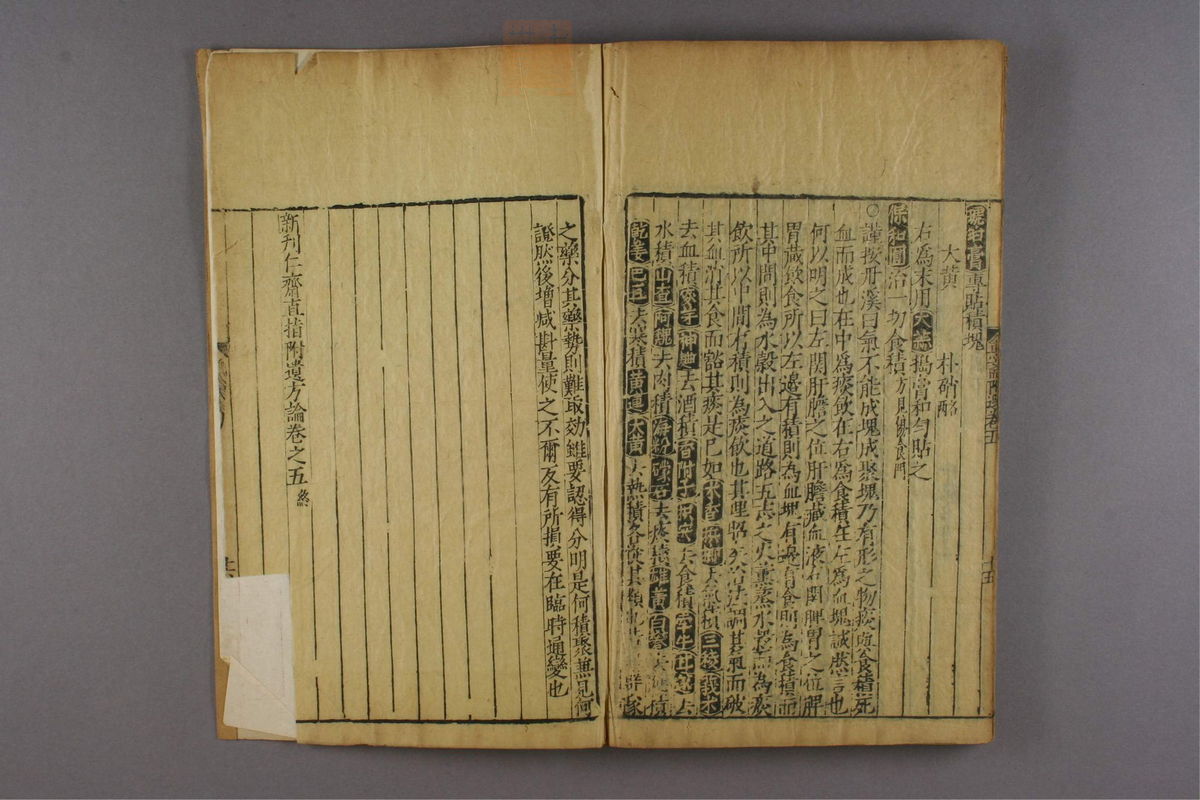 琥珀膏專貼積塊
大黃 朴硝酩
右為末用大蒜搗膏和勻貼之
保和圓治一切食積方見傷食門
○謹按丹溪曰氣不能成塊成聚塊乃有形之物痰與食積死
血而成也在中為痰飲在右為食積在左為血塊誠然言也
何以明之曰左関肝膽之位肝膽藏血液右関脾胃之位脾
胃藏飲食所以左邊有積則為血塊右邊有食則為食積而
其中間則為水穀出入之道路五志之火薰蒸水穀而為痰
飲所以中間有積則為痰飲也其理昭矣治法調其氣而破
其血消其食而豁其痰是已如木香梹榔去氣積三稜莪朮
去血積麥芽神曲去酒積香附子枳實去食積牽牛甘遂去
水積山查阿魏去肉積海粉礞石去痰積雄黃白礬去積
乾姜巴豆去寒積黃連大黃去熱積各從其類也
之藥分其藥勢則難取効雖要認得分明是何積聚兼見何
證然後增减斟量使之不爾反有所損要在臨時通變也
新刊仁齋直指附遺方論卷之五 終
十五